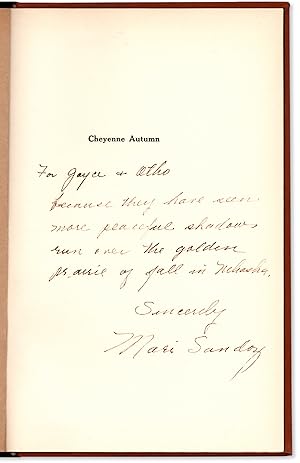 Cheyenne Autumn
For Joyce + Otho
because they have seen
more peaceful shadows
run over the golden
prairie of fall in Nebraska.
Sincerely
Mari Sandoz